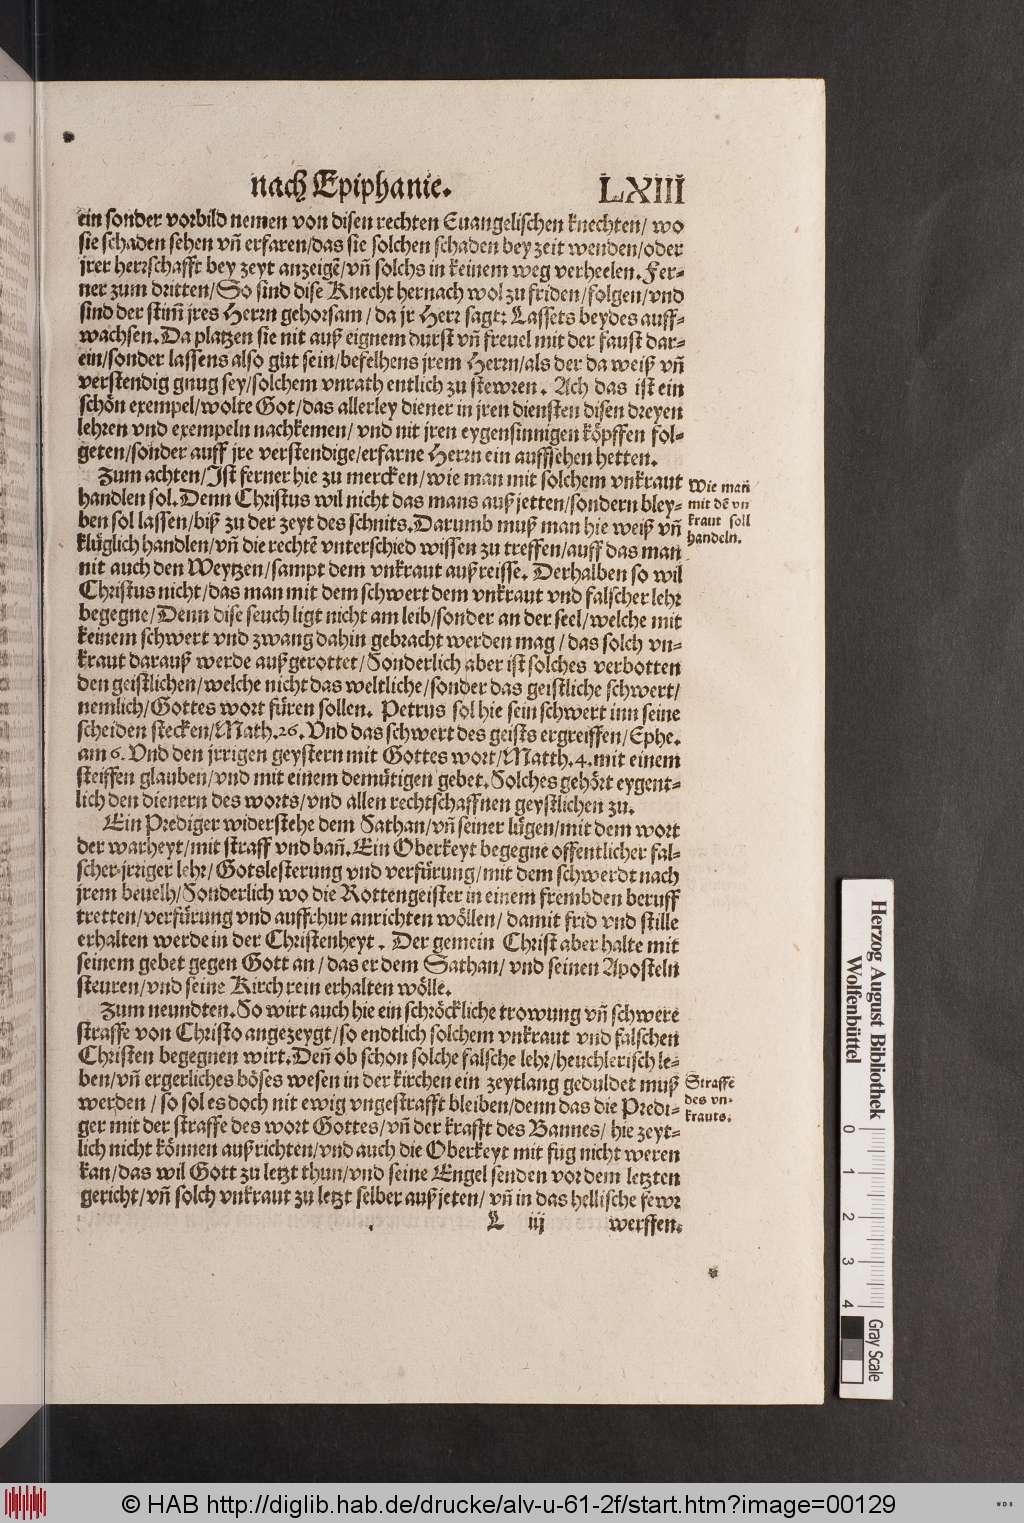 nach Epiphanie. LXIII
ein sonder vorbild nemen von disen rechten Euangelischen knechten/ wo
sie schaden sehen vñ erfaren/das sie solchen schaden bey zeit wenden/oder
jrer herrschafft bey zeyt anzeigẽ/vñ solchs in keinem weg verheelen. Fer-
ner zum dritten/So sind dise Knecht hernach wol zu friden/folgen/vnd
sind der stim̃ jres Herrn gehorsam/ da jr Herr sagt: Lassets beydes auff-
wachsen. Da platzen sie nit auß eignem durst vñ freuel mit der faust dar-
ein/sonder lassens also gůt sein/befelhens jrem Herrn/als der da weiß vñ
verstendig gnug sey/solchem vnrath entlich zu stewren. Ach das ist ein
schön exempel/wolte Got/das allerley diener in jren diensten disen dreyen
lehren vnd exempeln nachkemen/ vnd nit jren eygensinnigen köpffen fol-
geten/sonder auff jre verstendige/erfarne Herrn ein auffsehen hetten.
Zum achten/Ist ferner hie zu mercken/wie man mit solchem vnkraut
handlen sol. Denn Christus wil nicht das mans auß jetten/sondern bley-
ben sol lassen/biß zu der zeyt des schnits. Darumb muß man hie weiß vñ
klüglich handlen/vñ die rechtẽ vnterschied wissen zu treffen/auff das man
nit auch den Weytzen/sampt dem vnkraut außreisse. Derhalben so wil
Christus nicht/das man mit dem schwert dem vnkraut vnd falscher lehr
begegne/Denn dise seuch ligt nicht am leib/sonder an der seel/welche mit
keinem schwert vnd zwang dahin gebracht werden mag/das solch vn-
kraut darauß werde außgerottet/Sonderlich aber ist solches verbotten
den geistlichen/welche nicht das weltliche/sonder das geistliche schwert/
nemlich/Gottes wort füren sollen. Petrus sol hie sein schwert inn seine
scheiden stecken/Math.26. Vnd das schwert des geists ergreiffen/Ephe.
am 6. Vnd den jrrigen geystern mit Gottes wort/Matth.4. mit einem
steiffen glauben/vnd mit einem demütigen gebet. Solches gehört eygent-
lich den dienern des worts/vnd allen rechtschaffnen geystlichen zu.
Ein Prediger widerstehe dem Sathan/vñ seiner lügen/mit dem wort
der warheyt/mit straff vnd bañ. Ein Oberkeyt begegne offentlicher fal-
scher jrriger lehr/Gotslesterung vnd verfürung/mit dem schwerdt nach
jrem beuelh/Sonderlich wo die Rottengeister in einem frembden beruff
tretten/verfürung vnd auffrhur anrichten wöllen/ damit frid vnd stille
erhalten werde in der Christenheyt. Der gemein Christ aber halte mit
seinem gebet gegen Gott an/das er dem Sathan/ vnd seinen Aposteln
steuren/vnd seine Kirch rein erhalten wölle.
Zum neundten. So wirt auch hie ein schröckliche trowung vñ schwere
straffe von Christo angezeygt/so endtlich solchem vnkraut vnd falschen
Christen begegnen wirt. Deñ ob schon solche falsche lehr/heuchlerisch le-
ben/vñ ergerliches böses wesen in der kirchen ein zeytlang geduldet muß
werden/ so sol es doch nit ewig vngestrafft bleiben/denn das die Predi-
ger mit der straffe des wort Gottes/vñ der krafft des Bannes/ hie zeyt-
lich nicht können außrichten/vnd auch die Oberkeyt mit fůg nicht weren
kan/das wil Gott zu letzt thun/vnd seine Engel senden vor dem letzten
gericht/vñ solch vnkraut zu letzt selber außjeten/ vñ in das hellische fewr
L iij werffen.
Wie mañ
mit dẽ vn
kraut soll
handeln.
Straffe
des vn-
krauts.
Herzog August Bibliothek
Wolfenbüttel
0 1 2 3 4
Gray Scale
© HAB http://diglib.hab.de/drucke/alv-u-61-2f/start.htm?image=00129